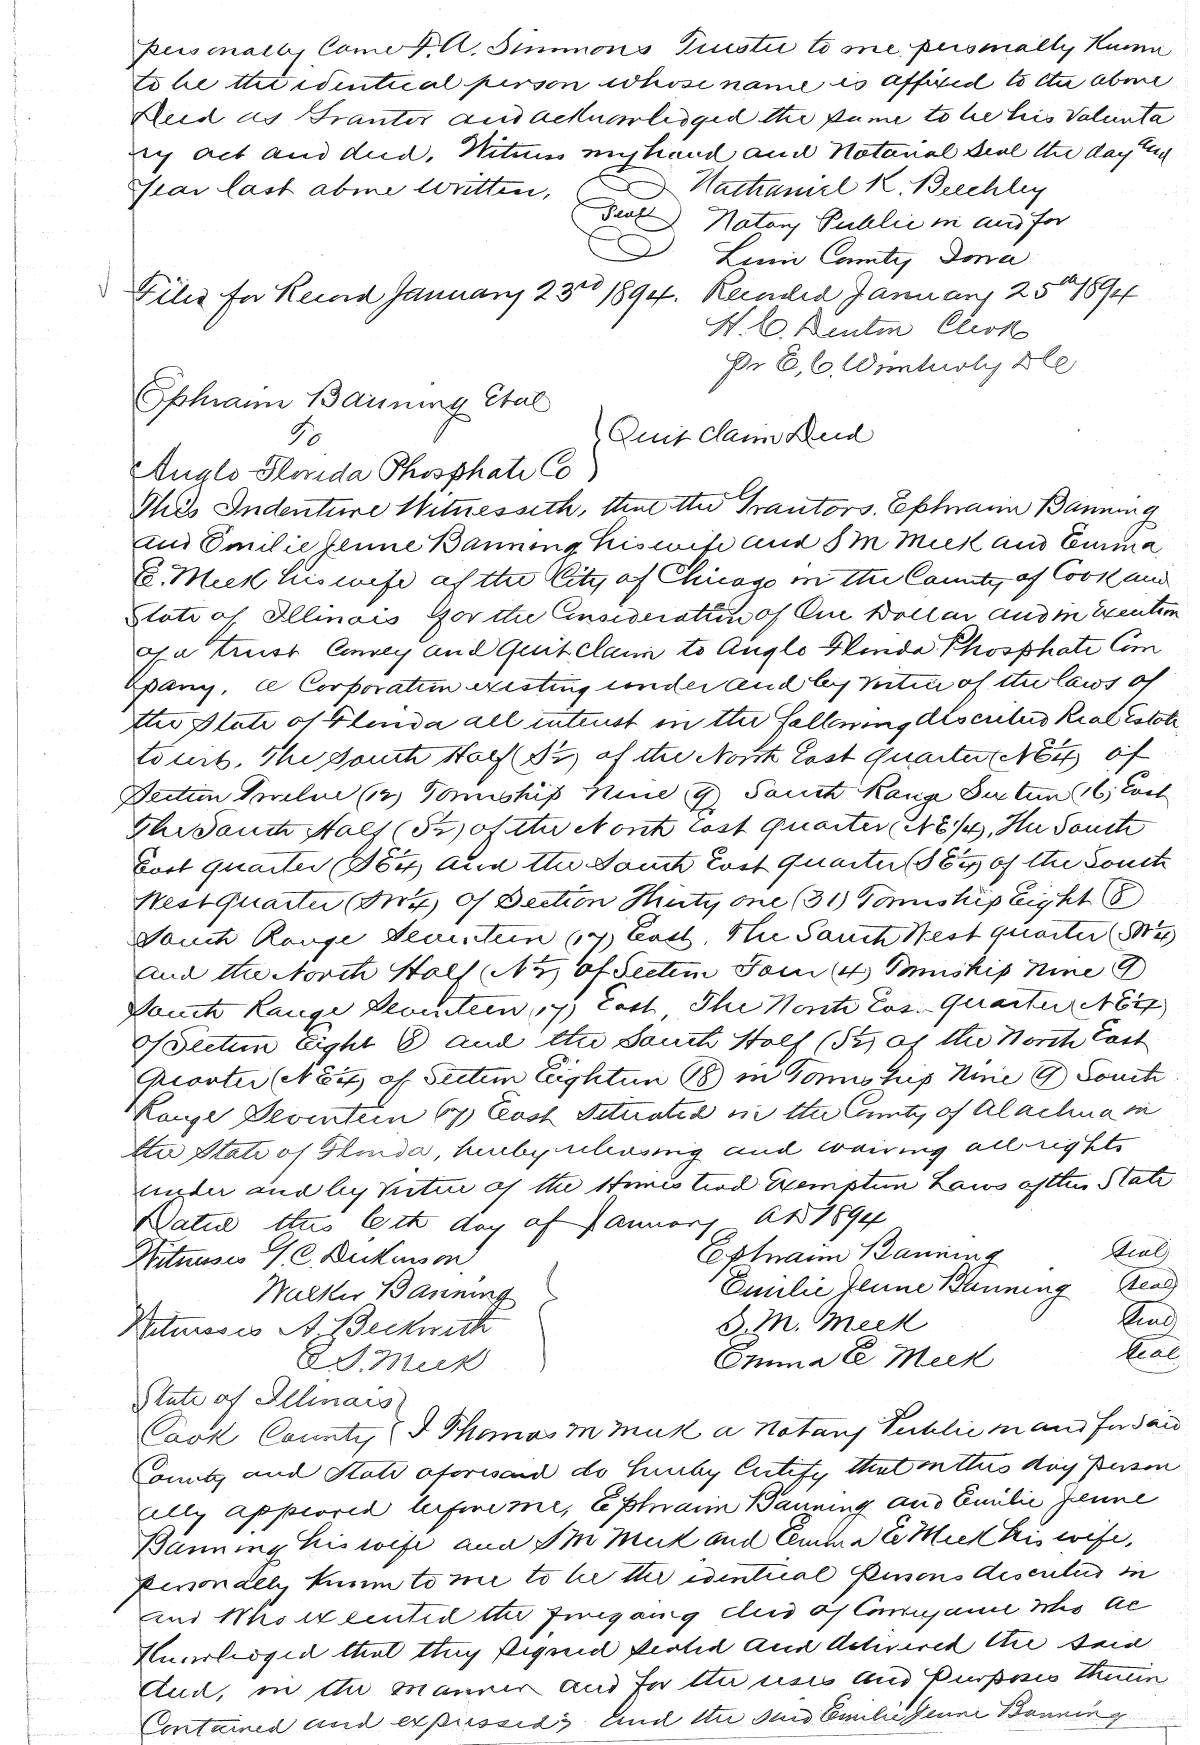 personally Came F. A. Simmons Trustee to me personally Known
to be the identical person whose name is affixed to the above
Deed as Grantor and acknowledged the same to be his Volunta
ry act and deed. Witness my hand and Notarial Seal the day and
Year last above written, Nathaniel K. Beechley
Seal Notary Public in and for
Linn County Iowa
Filed for Record January 23rd 1894. Recorded January 25th 1894
H. C. Denton Clerk
Pr E. C. Wimberly D C
Ephraim Banning Etal
To
Quit Claim Deed
Anglo-Florida Phosphate Co
This Indenture Witnesseth, that the Grantors. Ephraim Banning
and Emilie Jenne Banning his wife and S M Meek and Emma
E. Meek his wife of the City of Chicago in the County of Cook and
State of Illinois for the Consideration of One Dollar and in Execution
of a trust Convey and Quit claim to Anglo Florida Phosphate Com
pany, a Corporation existing under and by virtue of the laws of
the State of Florida all interest in the following described Real Estate
to wit. The South Half (S½) of the North East Quarter (NE¼) of
Section Twelve (12) Township Nine (9) South Range Sixteen (16) East
The South Half (S½) of the North East Quarter (NE¼), The South
East quarter (SE¼) and the South East quarter (SE¼) of the South
West Quarter (SW¼) of Section Thirty one (31) Township Eight (8)
South Range Seventeen (17) East. The South West quarter (SW¼)
and the North Half (N½) of Section Four (4) Township Nine (9)
South Range Seventeen (17) East, The North Eas Quarter (NE¼)
of Section Eight (8) and the South Half (S½) of the North East
Quarter (NE¼) of Section Eighteen (18) in Township Nine (9) South
Range Seventeen (17) East Situated in the County of Alachua in
the State of Florida, hereby releasing and waiving all rights
under and by virtue of the Homestead Exemption Laws of this State
Dated this 6th day of January AD 1894
Witnesses J. C. Dickinson Ephraim Banning Seal
Walker Banning Emilie Jenne Banning Seal
Witnesses A. Beckwith S. M. Meek Seal
E. S. Meek Emma E Meek Seal
State of Illinois
Cook County I Thomas M Meek a Notary Public in and for Said
County and State aforesaid do hereby Certify that on this day person
ally appeared before me, Ephraim Banning and Emilie Jenne
Banning his wife and S M Meek and Emma E Meek his wife,
personally Known to me to be the identical Persons described in
and Who executed the foregoing deed of Conveyance who ac
Knowledged that they signed sealed and delivered the said
deed, in the manner and for the uses and purposes therein
Contained and expressed; and the said Emilie Jenne Banning